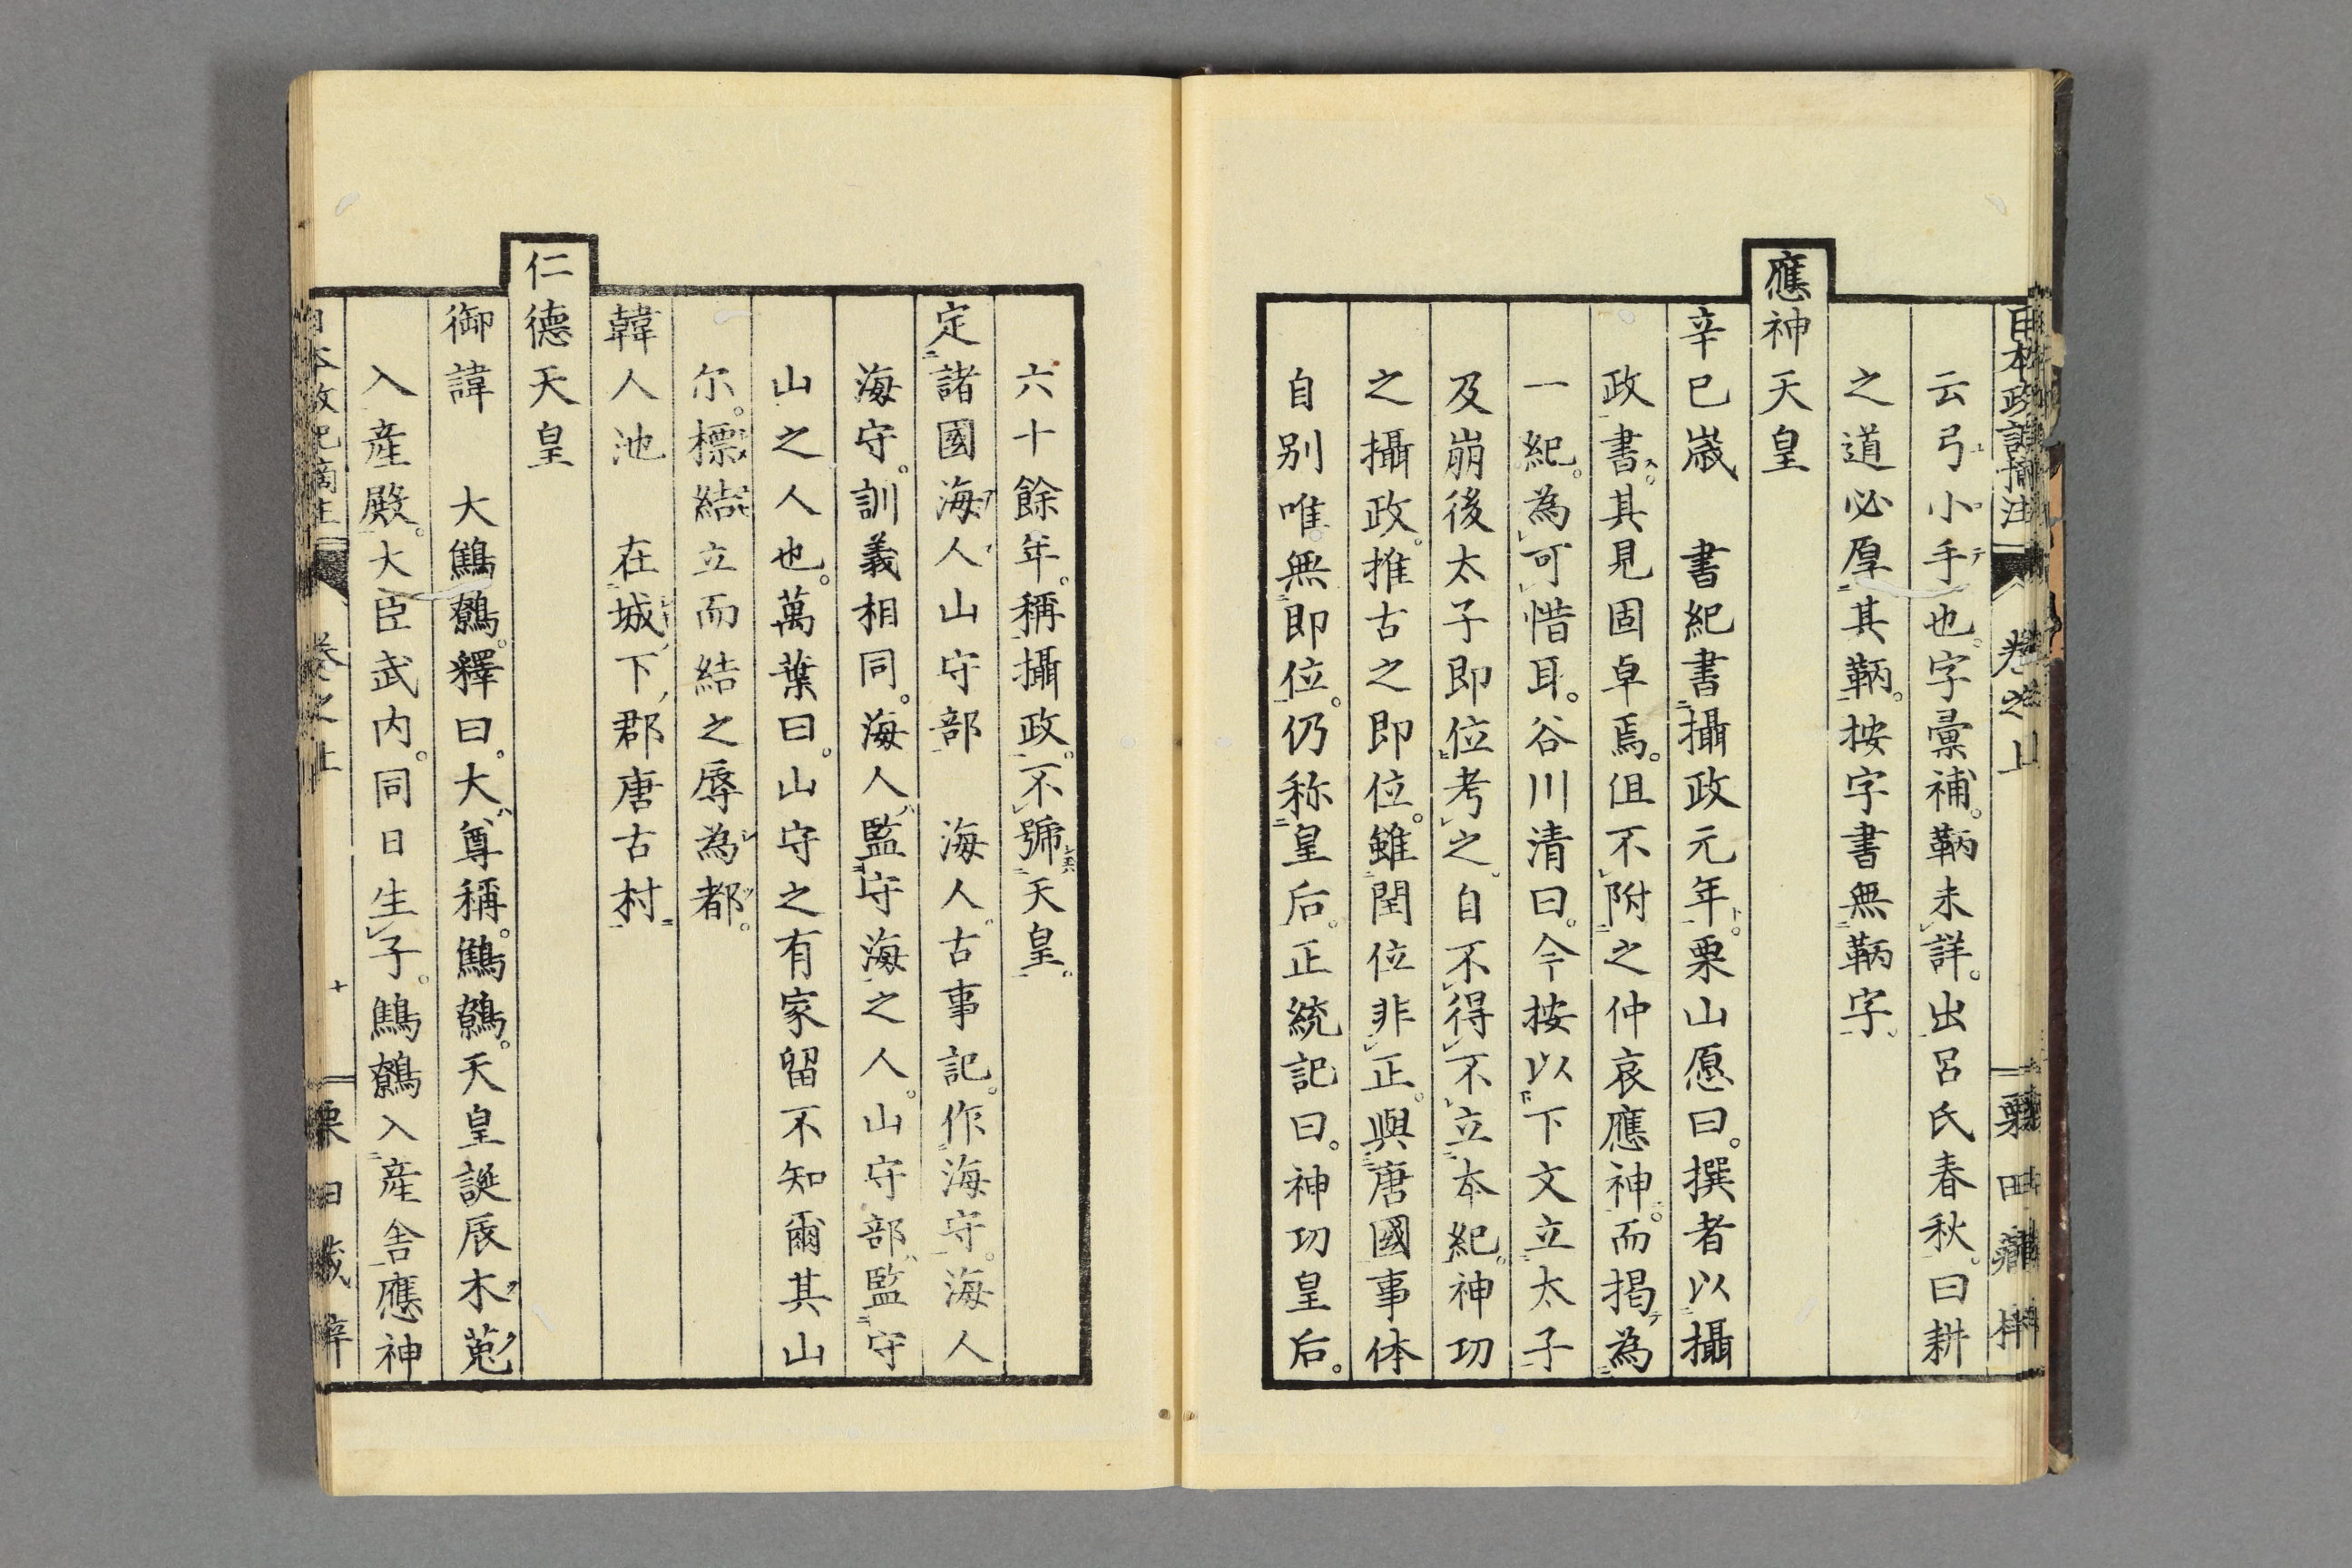 日本政記摘注 卷之上 栗田藏梓
云弓小手也。字彙補。鞆未詳。出呂氏春秋。曰耕
之道必厚其鞆。按字書無鞆字
應神天皇
辛巳歲 書紀書攝政元年。栗山愿曰。撰者以攝
政書。其見固卓焉。但不附之仲哀應神。而揭為
一紀。為可惜耳。谷川清曰。今按以下文立太子
及崩後太子即位考之。自不得不立本紀。神功
之攝政。推古之即位。雖閏位非正。與唐國事体
自別唯無即位。仍称皇后。正統記曰。神功皇后。
六十餘年。稱攝政。不號天皇。
定諸國海人山守部 海人。古事記。作海守。海人
海守。訓義相同。海人監守海之人。山守部監守
山之人也。萬葉曰。山守之有家留不知爾其山
尔。標結立而結之辱為都。
韓人池 在城下郡唐古村
仁德天皇
御諱 大鷦鷯。釋曰。大尊稱。鷦鷯。天皇誕辰木菟
入產殿。大臣武内。同日生子。鷦鷯入產舍應神
日本政記摘注 卷之上 十 栗田藏梓